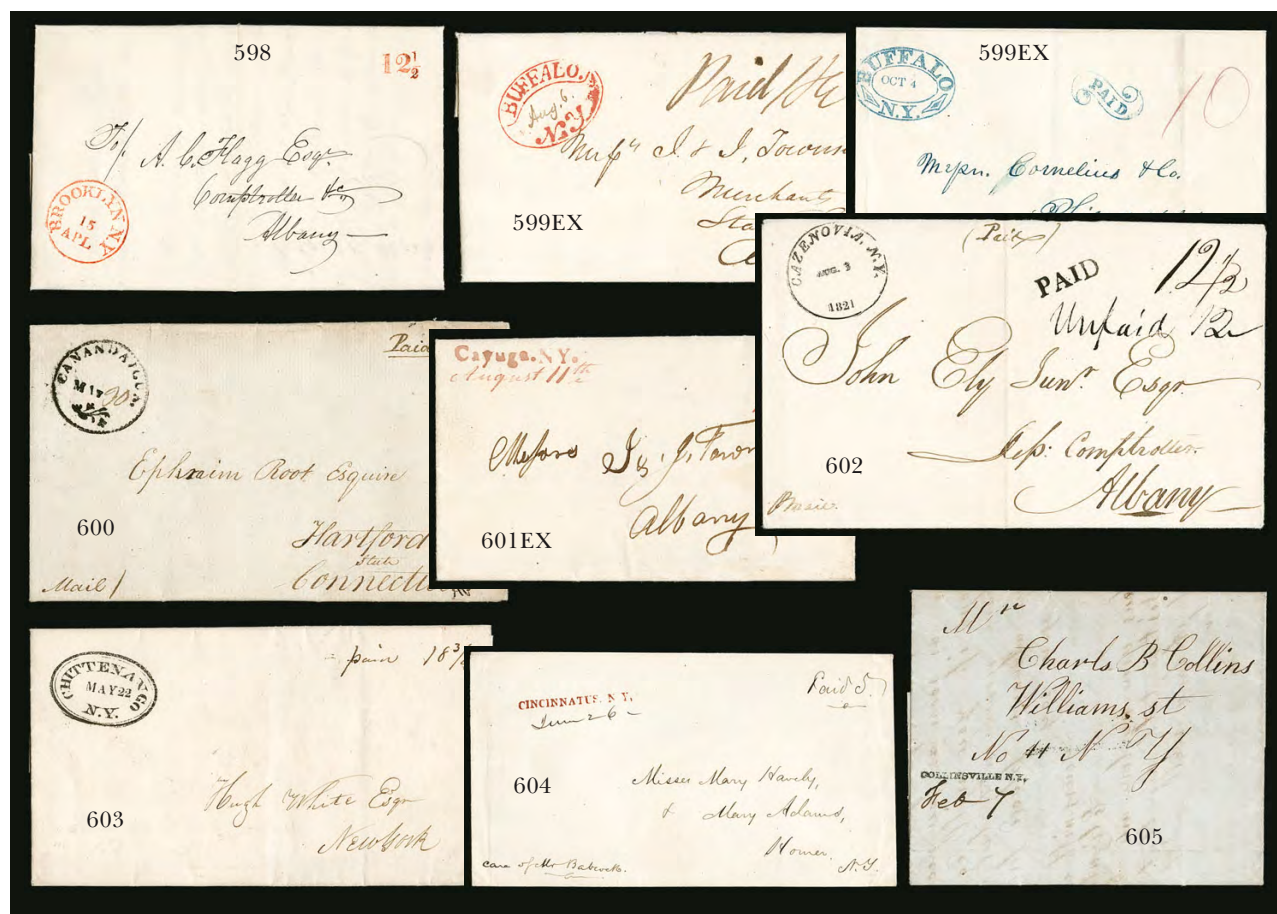 598
12½
To/
A. C. Flagg Esqr
Comptroller &c
Albany
BROOKLYN N.Y.
15
APL
BUFFALO.
Aug. 6.
N.Y.
Paid
I. & I. Towns
Merchants
599EX
599EX
BUFFALO
OCT 4
N.Y.
PAID
10
Cornelius & Co.
CANANDAIGUA
MAY
30
Paid
Ephraim Root Esquire
Hartford
State
Connecticu
600
Mail/
Cayuga. N.Y.
August 11th
Messrs I. & J. Town
Albany
601EX
CAZENOVIA. N.Y.
AUG. 3
1821
(Paid)
PAID
12/2
Unpaid 12
John Ely Junr. Esqr
Dep: Comptroller
Albany
602
CHITTENANGO
MAY 22
N.Y.
paid 18 3/
Hugh White Esqr
New York
603
CINCINNATUS. N.Y.
June 26
Paid 5.
604
Misses Mary Hawly,
& Mary Adams,
Homer.
N.Y.
care of Mr Babcock.
Mr
Charls B Collins
Williams. st
No 11 N Y
COLLINSVILLE N.Y.
Feb 7
605